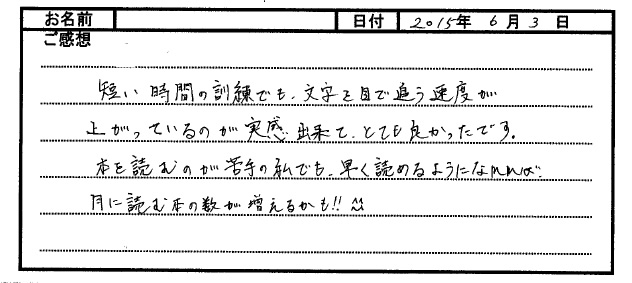 お名前 日付 2015年 6月 3日
ご感想
短い時間の訓練でも、文字を目で追う速度が
上がっているのが実感出来て、とても良かったです。
本を読むのが苦手の私でも、早く読めるようになれば、
月に読む本の数が増えるかも!! ^^